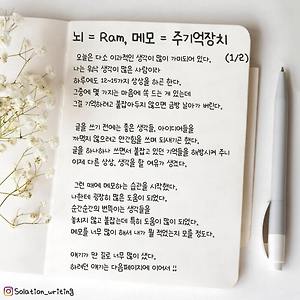 뇌 = Ram, 메모 = 주기억장치
(1/2)
오늘은 다소 이과적인 생각이 많이 가미되어 있다.
나는 워낙 생각이 많은 사람이라
하루에도 12만가지 상상을 하곤 한다.
그중에 몇 가지는 마음에 쏙 드는 게 있는데
그걸 기억하려고 붙잡아두지 않으면 금방 날아가 버린다.
글을 쓰기 전에는 좋은 생각들, 아이디어들을
까먹지 않으려고 안간힘을 쓰며 되새기곤 했다.
글을 하나하나 쓰면서 붙잡고 있던 기억들을 해방시켜 주니
이제 다른 상상, 생각을 할 여유가 생겼다.
그런 때에 메모하는 습관을 시작했다.
나한테 굉장히 많은 도움이 되었다.
순간순간의 번뜩이는 생각들을
놓치지 않고 붙잡는데 특히 도움이 많이 되었다.
메모를 너무 많이 해서 내가 뭘 적었는지 모를 정도다.
얘기가 딴 길로 너무 많이 샜다.
하려던 얘기는 다음페이지에 이어서 !!
@Solation_writing